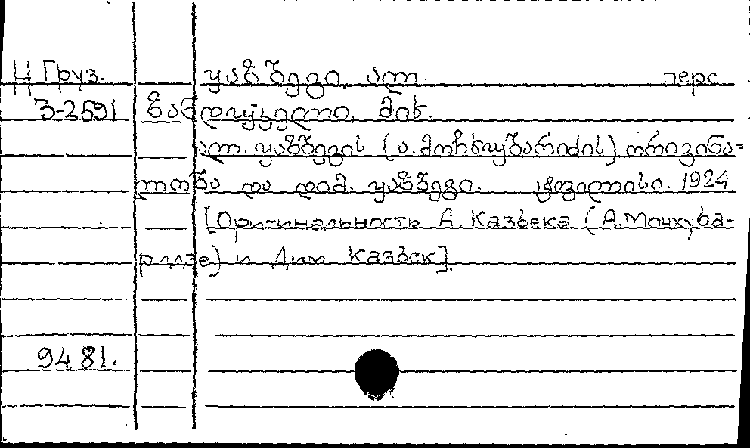 Ц Груз. ყაზბეგი, ალ. перс
3-2591 ზანდუკელი, მიხ.
ალ. ყაზბეგის (ა. მოჩხუბარიძის) ორიგინა-
ლობა და დიმ. ყაზბეგი. ტფილისი. 1924
[Оригинальность А. Казбека (А. Мочхуба-
ридзе) и Дим Казбек].
9481.